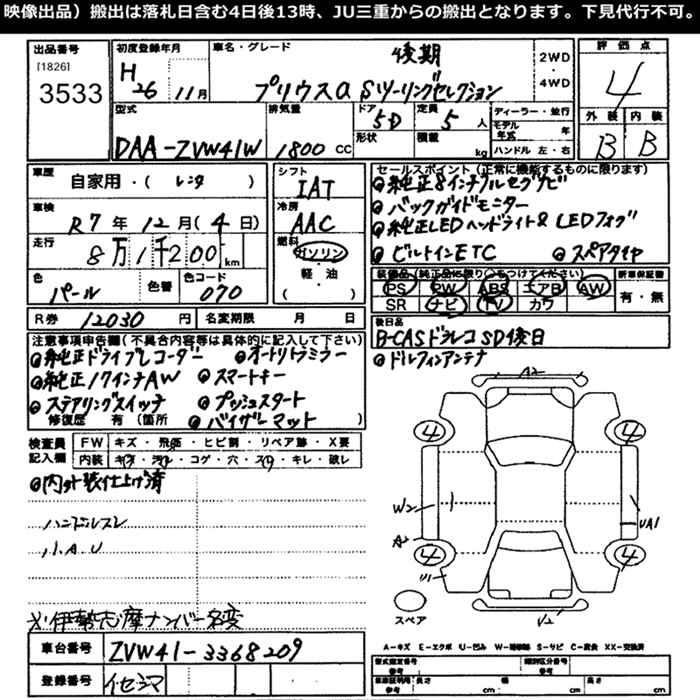 映像出品）搬出は落札日含む4日後13時、JU三重からの搬出となります。下見代行不可。
出品番号
[1826]
3533
初度登録年月
H26 11月
車名・グレード
後期
プリウスα Sツーリングセレクション
2WD
・
4WD
評価点
4
外装 内装
B B
型式
DAA-ZVW41W
排気量
1800 CC
ドア
5D
形状
定員
5人
積載
kg
ディーラー・並行
モデル年式 年
ハンドル 左・右
車歴
自家用・( レンタ )
車検
R7年12月(4日)
走行
8万1千200km
色
パール
色替
色コード
070
シフト
IAT
冷房
AAC
燃料
ガソリン
・
軽・油
R券 12030円
名変期限 月 日
セールスポイント（正常に機能するものに限ります）
純正8インチフルセグナビ
バックガイドモニター
純正LEDヘッドライト& LEDフォグ
ビルトインETC
スペアタイヤ
装備品（純正品に限り〇をつけてください）
PS PW ABS エアB AW
SR ナビ TV カワ
新車保証書
有・無
後日品
B-CASドラレコSD後日
ドルフィンアンテナ
注意事項申告欄（不具合内容等は具体的に記入して下さい）
純正ドライブレコーダー
オートリトラミラー
純正17インチAW
スマートキー
ステアリングスイッチ
プッシュスタート
修復歴 有（箇所
バイザーマット
検査員記入欄
FW キズ・飛石・ヒビ割・リペア跡・X要
内装 キズ・汚れ・コゲ・穴・スレ・キレ・破レ
内外装仕上げ済
ハンドルスレ
小A.U
※伊勢志摩ナンバー名変
車台番号
ZVW41-3368209
登録番号
イセシマ
A2
4 4
W2
A2
UA1
4 4
U1
U2
スペア
A-キズ E-エクボ U-凹み W-補修跡 S-サビ C-腐食 XX-交換済
型式指定番号
参考
類別区分番号
参考
長さ
cm
幅
cm
高さ
cm